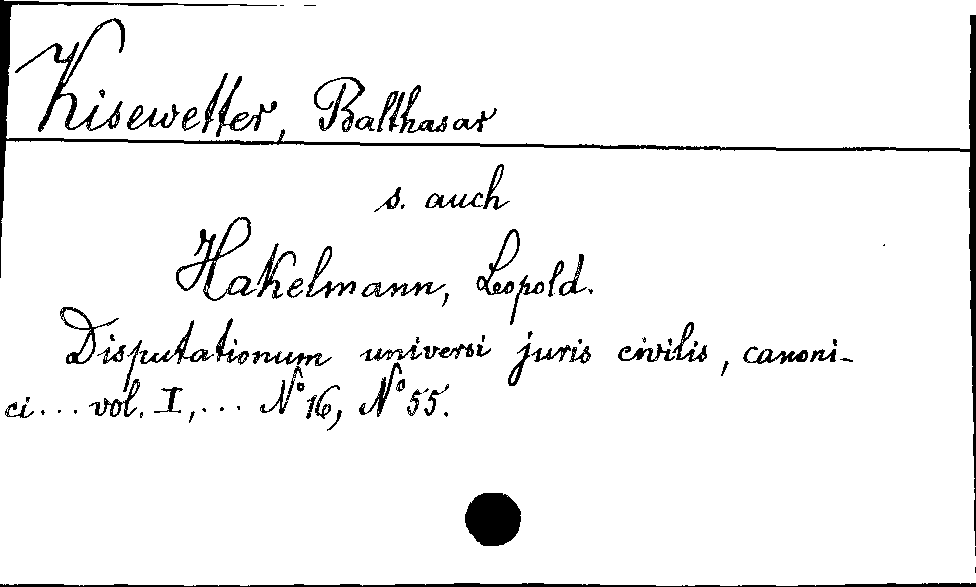 Kisewetter, Balthasar
s. auch
Hakelmann, Leopold.
Disputationum universi juris civilis, canoni-
ci... vol. I,... No 16, No 55.